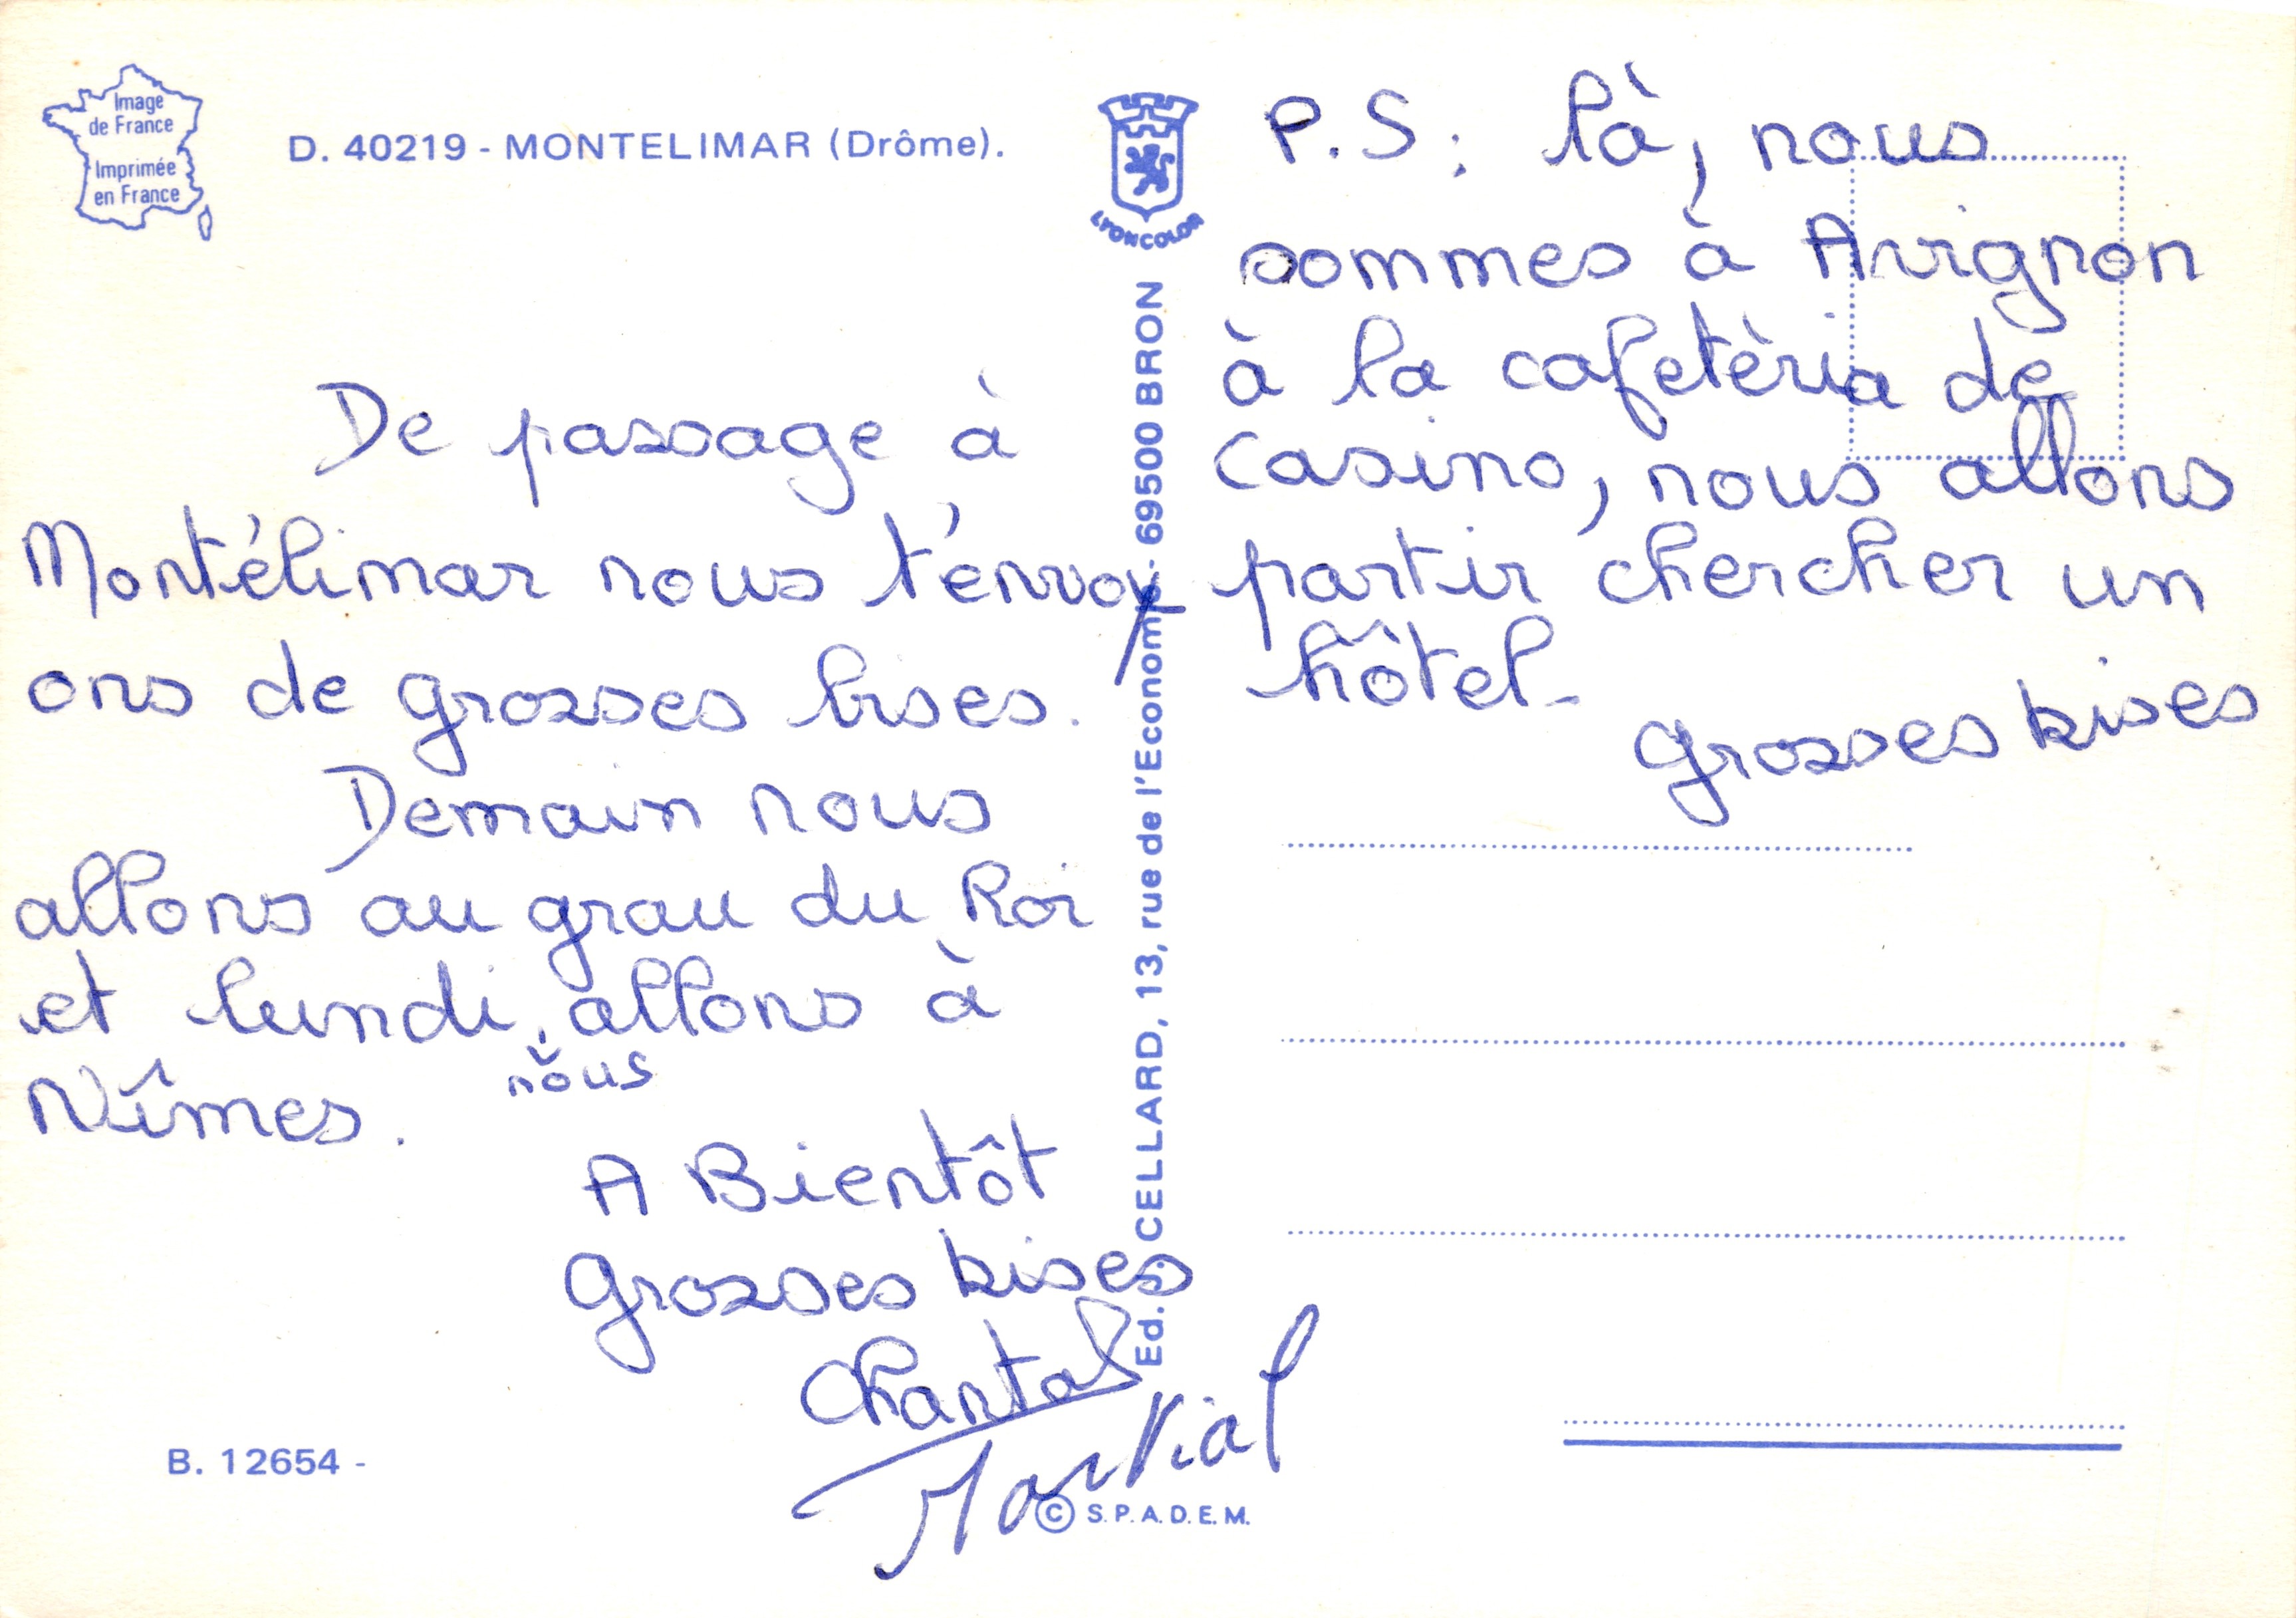 Image
de France
Imprimée
en France
D. 40219 - MONTELIMAR (Drôme).
De passage à
Montélimar nous t'envoy
ons de grosses bises.
Demain nous
allons au grau du Roi
et lundi, allons à
nous
Nîmes.
A Bientôt
grosses bises
Chantal
Martial
B. 12654 -
LYONCOLOR
Ed. J. CELLARD, 13, rue de l'Economie - 69500 BRON
© S.P.A.D.E.M.
P.S: là, nous
sommes à Avignon
à la cafetèria de
casino, nous allons
partir chercher un
hôtel-
grosses bises